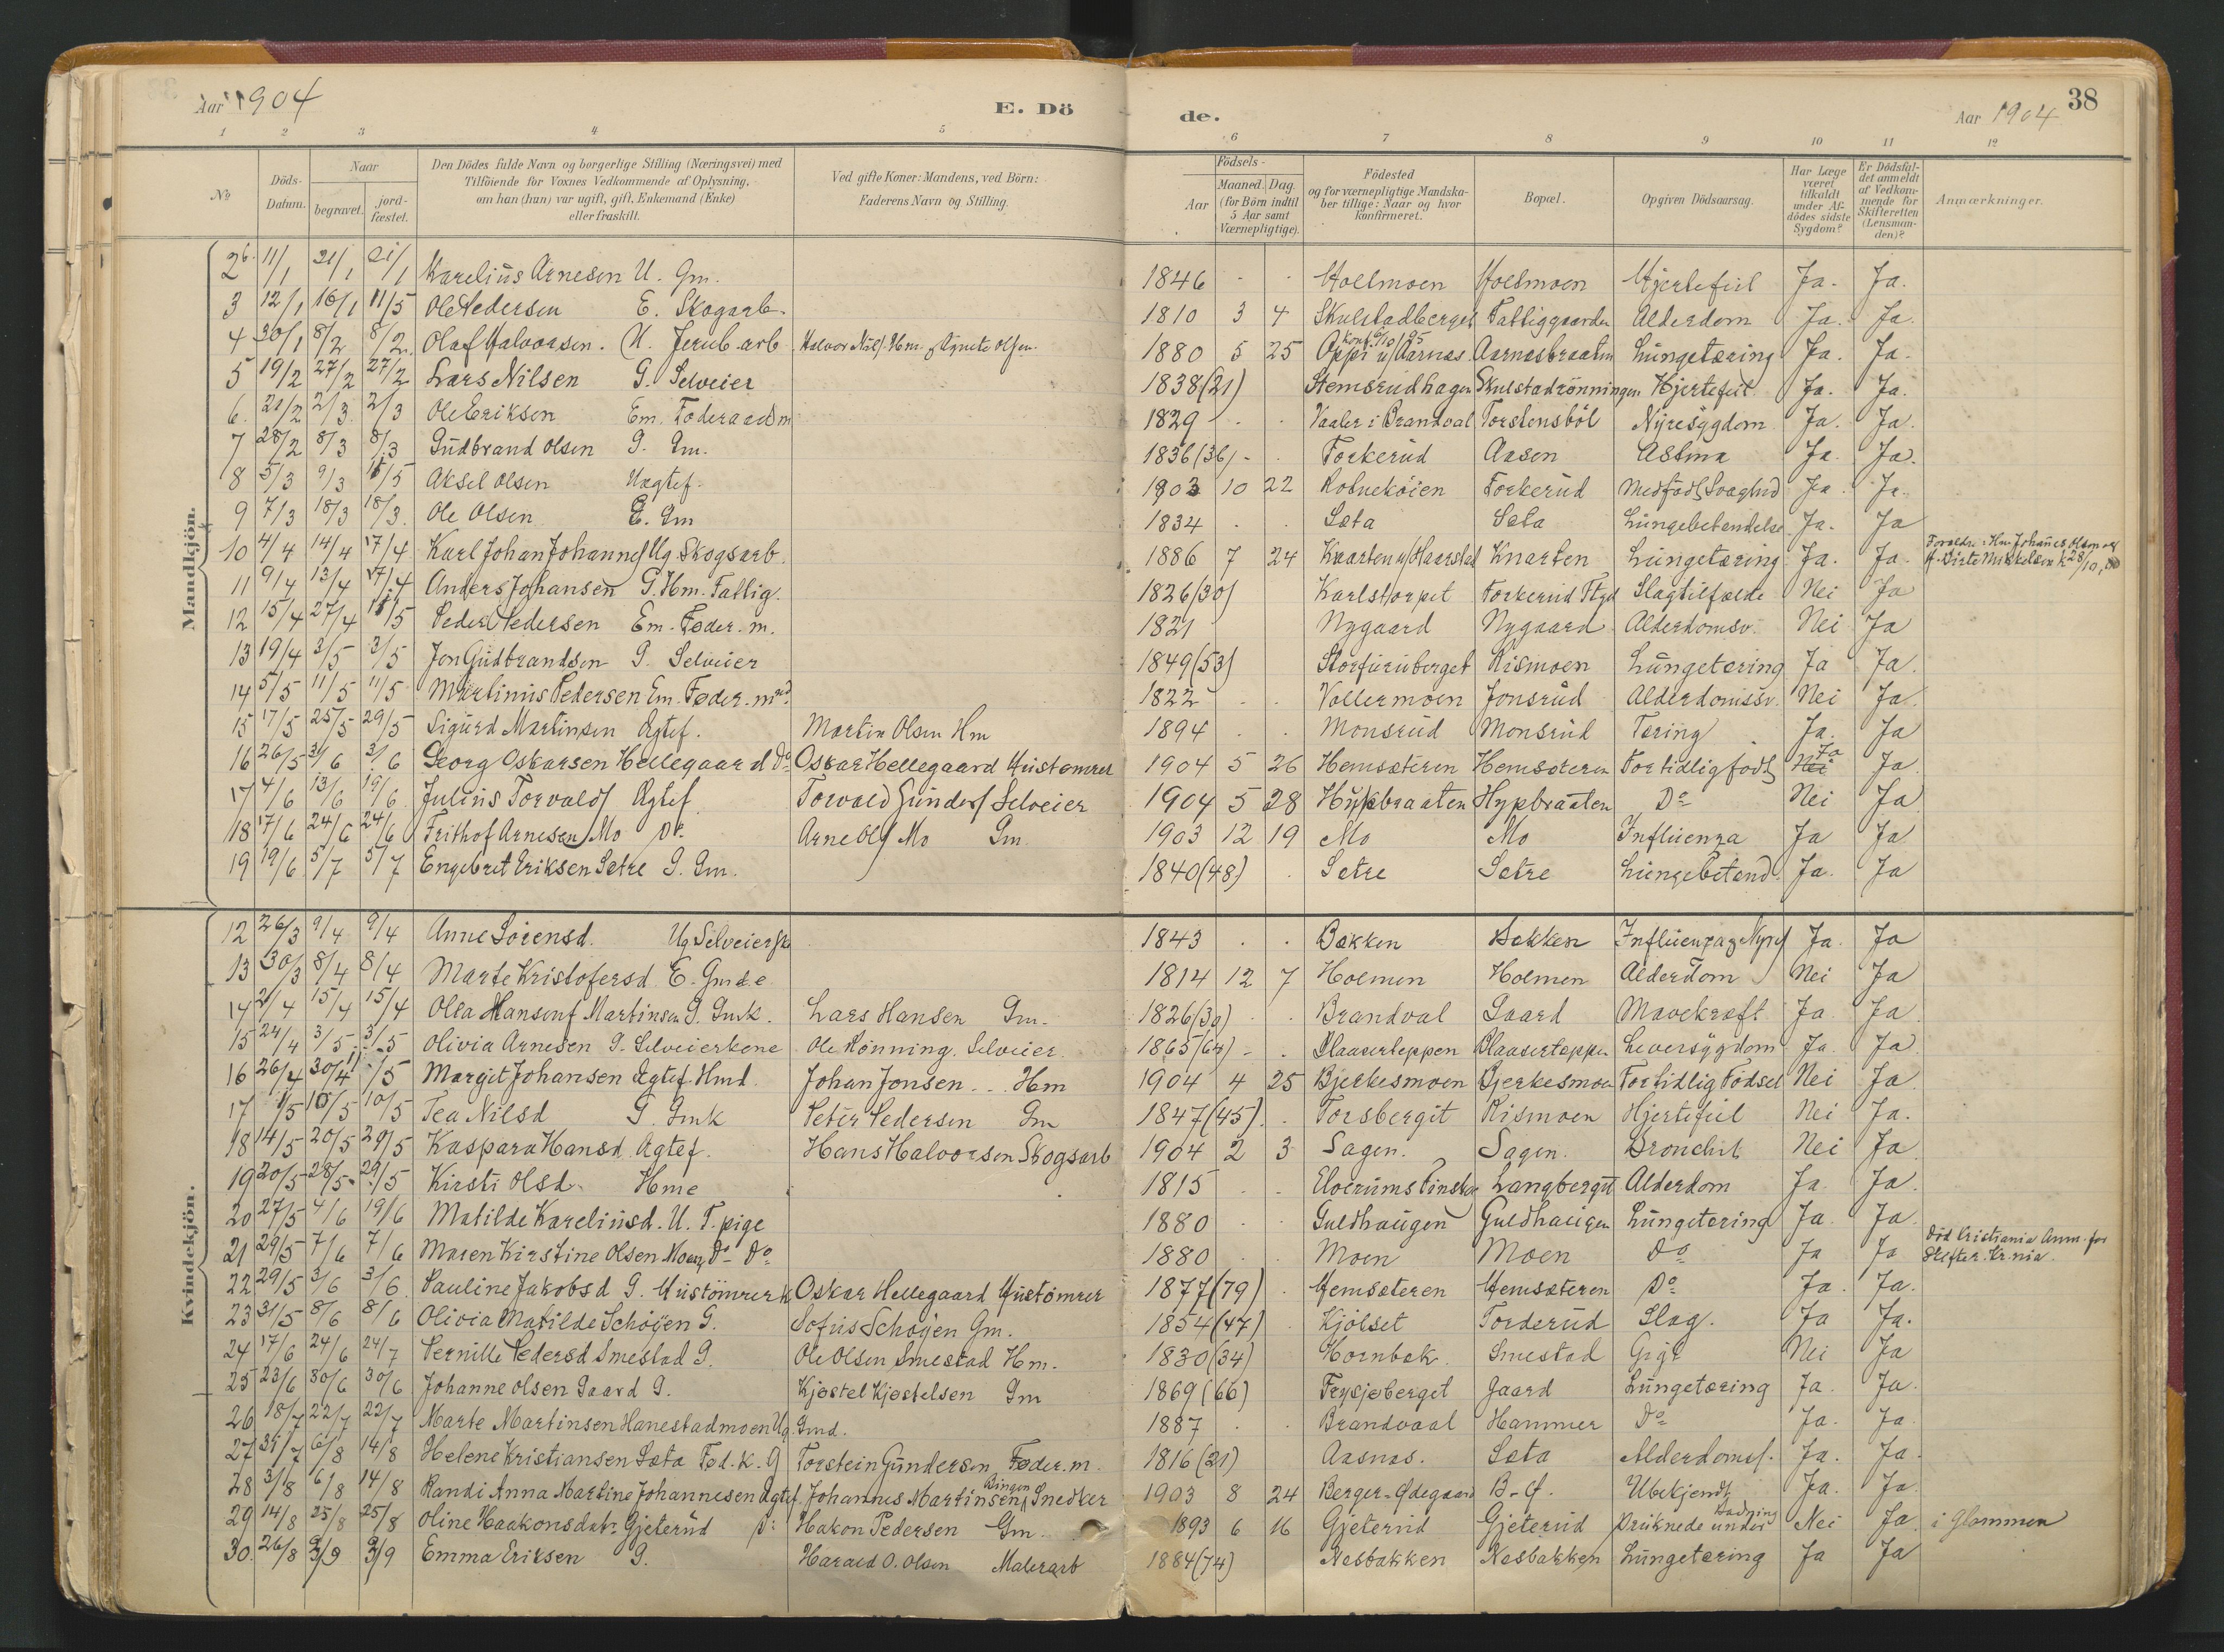 Aar 1904 E. Dö
de. Aar 1904 38
1 2 3 4 5 6 7 8 9 10 11 12
No
Döds-Datum.
Naar begravet. jordfæstet.
Den Dödes fulde Navn og borgerlige Stilling (Næringsvei) med Tilföiende for Voxnes Vedkommende af Oplysning, om han (hun) var ugift, gift, Enkemand (Enke) eller fraskilt.
Ved gifte Koner: Mandens, ved Börn: Faderens Navn og Stilling.
Födsels- Aar Maaned. Dag. (for Börn indtil 5 Aar samt Værnepligtige).
Födested og for værnepligtige Mandskaber tillige: Naar og hvor konfirmeret.
Bopæl.
Opgiven Dödsaarsag.
Har Læge været tilkaldt under Afdödes sidste Sygdom?
Er Dödsfaldet anmeldt af Vedkommende for Skifteretten (Lensmanden)?
Anmærkninger.
Mandkjön.
2 11/1 21/1 21/1 Karelius Arnesen U. Gm. 1846 Hollmoen Hollmoen Hjertefeil Ja. Ja.
3 12/1 16/1 11/5 Ole Pedersen E. Skogarb. 1810 3 4 Skulstadberget Fattiggaarden Alderdom Ja. Ja.
4 30/1 8/2 8/2 Olaf Halvorsen. U. Jernb. arb Halvor Nils. Hm. og Agnete Olsen. 1880 5 25 Oppi u/Aarnas Aarnasbraaten Lungetæring Ja. Ja.
5 19/2 27/2 27/2 Lars Nilsen G. Selveier 1838(21) Stemsrudhagen Skulstadrönningen Hjertefeil Ja. Ja.
6 21/2 2/3 2/3 Ole Eriksen Em. Föderaadm 1829 Vaaler i Brandval Torstensböl Nyresygdom Ja. Ja.
7 28/2 8/3 8/3 Gudbrand Olsen G. Gm. 1836(36) Forkerud Aasen Astma Ja. Ja.
8 5/3 9/3 11/5 Aksel Olsen Uægtef. 1903 10 22 Rotnekóien Forkerud Medfödt Svaghed Ja. Ja.
9 7/3 18/3 18/3 Ole Olsen E. Gm 1834 Sæta Sæta Lungebetendelse Ja. Ja
10 4/4 14/4 17/4 Karl Johan Johannes Ug. Skogsarb. 1886 7 24 Knarten u/Haarstad Knarten Lungetæring Ja. Ja.
11 9/4 13/4 17/4 Anders Johansen G. Hm. Fattig. 1826(30) Karlstorpet Forkerud Slagtilfælde Nei Ja
12 15/4 27/4 11/5 Peder Pedersen Em. Föder. m. 1821 Nygaard Nygaard Alderdomsv. Nei Ja
13 19/4 3/5 3/5 Jon Gudbrandsen G. Selveier 1849(53) Storfuruberget Rismoen Lungetæring Ja Ja.
14 5/5 11/5 11/5 Martinius Pedersen Em. Föder. m. 1822 Vollermoen Jonsrud Alderdomssv. Nei Ja.
15 17/5 25/5 29/5 Sigurd Martinsen Ægtef. Martin Olsen Hm 1894 Monsrud Monsrud Tæring Ja. Ja
16 26/5 3/6 3/6 Georg Oskarsen Hellegaard Do Oskar Hellegaard Hustömrer 1904 5 26 Hemsæteren Hemsæteren For tidlig födt Nei Ja Ja
17 4/6 13/6 19/6 Julius Torvalds Ægtef Torvald Gunders Selveier 1904 5 28 Hypbraaten Hypbraaten Do Nei Ja
18 17/6 24/6 24/6 Frithof Arnesen Mo Do. Arne Ols Mo Gm 1903 12 19 Mo Mo Influenza Ja Ja
19 19/6 5/7 5/7 Engebret Eriksen Sætre G. Gm. 1840(48) Sætre Sætre Lungebetend. Ja. Ja
Kvindekjön.
12 26/3 9/4 9/4 Anne Sörensd. Ug Selveierske 1843 Bakken Bakken Influenza og Ja. Ja
13 30/3 8/4 8/4 Marte Kristofersd E. Gmde 1814 12 7 Holmen Holmen Alderdom Nei Ja
14 2/4 15/4 15/4 Olea Martinsen G. Gmk. Lars Hansen Gm. 1826(30) Brandval Gaard Mavekræft Ja Ja
15 24/4 3/5 3/5 Olivia Arnesen G. Selveierkone Ole Rönning. Selveier. 1865(64) Plaasertoppen Plaasertoppen Leversygdom Ja. Ja
16 26/4 30/4 11/5 Margit Johansen Ægtef. Hmd. Johan Jonsen Hm 1904 4 25 Bjerkesmoen Bjerkesmoen For tidlig Födsel Nei Ja
17 1/5 10/5 10/5 Tea Nilsd G. Gmk Peter Pedersen Gm 1847(45) Torsbergit Rismoen Hjertefeil Nei Ja.
18 14/5 20/5 29/5 Kaspara Hansd Ægtef. Hans Halvorsen Skogsarb 1904 2 3 Sagen. Sagen. Bronchit Nei Ja
19 20/5 28/5 29/5 Kirsti Olsd. Hme 1815 Elverums Finskog Langberget Alderdom Ja. Ja.
20 27/5 4/6 19/6 Matilde Kareliusd. U. T. pige 1880 Guldhaugen Guldhaugen Lungetæring Ja. Ja.
21 29/5 7/6 7/6 Maren Kirstine Olsen Moen Do Do 1880 Moen Moen Do Ja Ja
22 29/5 3/6 3/6 Pauline Jakobsd G. Hustömrerk Oskar Hellegaard Hustömrer 1877(79) Hemsæteren Hemsæteren Do Ja Ja.
23 31/5 8/6 8/6 Olivia Matilde Schöyen G. Sofus Schöyen Gm. 1854(47) Kjölset Torderud Slag. Ja Ja.
24 17/6 24/6 24/7 Pernille Pedersd Smestad G. Ole Olsen Smestad Hm. 1830(34) Hornbæk. Smestad Gigt Nei Ja
25 23/6 30/6 30/6 Johanne Olsen Gaard G. Kjöstel Kjöstelsen Gm 1869(66) Frysjöberget Gaard Lungetæring Ja. Ja.
26 18/7 22/7 22/7 Marte Martinsen Hanestadmoen Ug. Gmd. 1887 Brandvaal Hammer Do Ja. Ja.
27 31/7 6/8 14/8 Helene Kristiansen Sæta Föd. K. G Torstein Gundersen Föder. m. 1816(21) Aasnas. Sæta Alderdoms. Ja. Ja.
28 3/8 6/8 14/8 Randi Anna Martine Johannesen Ægtef. Johannes Martinsen Bingen Snedker 1903 8 24 Berger-Ödegaard B-Ö. Ubekjendt Ja. Ja.
29 14/8 25/8 25/8 Oline Haakonsdatr Gjeterud Do Hakon Pedersen Gm. 1893 6 16 Gjeterud Gjeterud Druknede under Badning Nei Ja. i Glommen
30. 26/8 3/9 3/9 Emma Eriksen G. Harald O. Olsen Malerarb 1884(74) Næsbakken Næsbakken Lungetæring Ja Ja